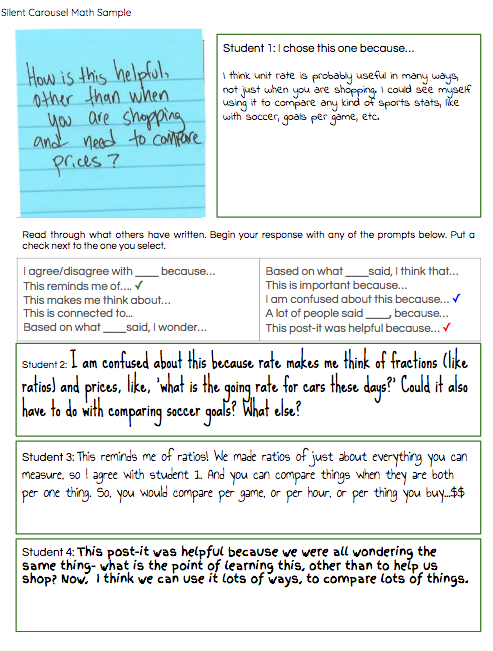 Silent Carousel Math Sample
How is this helpful,
other than when
you are shopping
and need to compare
prices?
Student 1: I chose this one because...
I think unit rate is probably useful in many ways,
not just when you are shopping. I could see myself
using it to compare any kind of sports stats, like
with soccer, goals per game, etc.
Read through what others have written. Begin your response with any of the prompts below. Put a
check next to the one you select.
I agree/disagree with ____ because...
This reminds me of.... ✓
This makes me think about...
This is connected to...
Based on what ____said, I wonder...
Based on what ____said, I think that...
This is important because...
I am confused about this because... ✓
A lot of people said ____, because...
This post-it was helpful because... ✓
Student 2: I am confused about this because rate makes me think of fractions (like
ratios) and prices, like, 'what is the going rate for cars these days?' Could it also
have to do with comparing soccer goals? What else?
Student 3: This reminds me of ratios! We made ratios of just about everything you can
measure, so I agree with student 1. And you can compare things when they are both
per one thing. So, you would compare per game, or per hour, or per thing you buy...$$
Student 4: This post-it was helpful because we were all wondering the
same thing- what is the point of learning this, other than to help us
shop? Now, I think we can use it lots of ways, to compare lots of things.